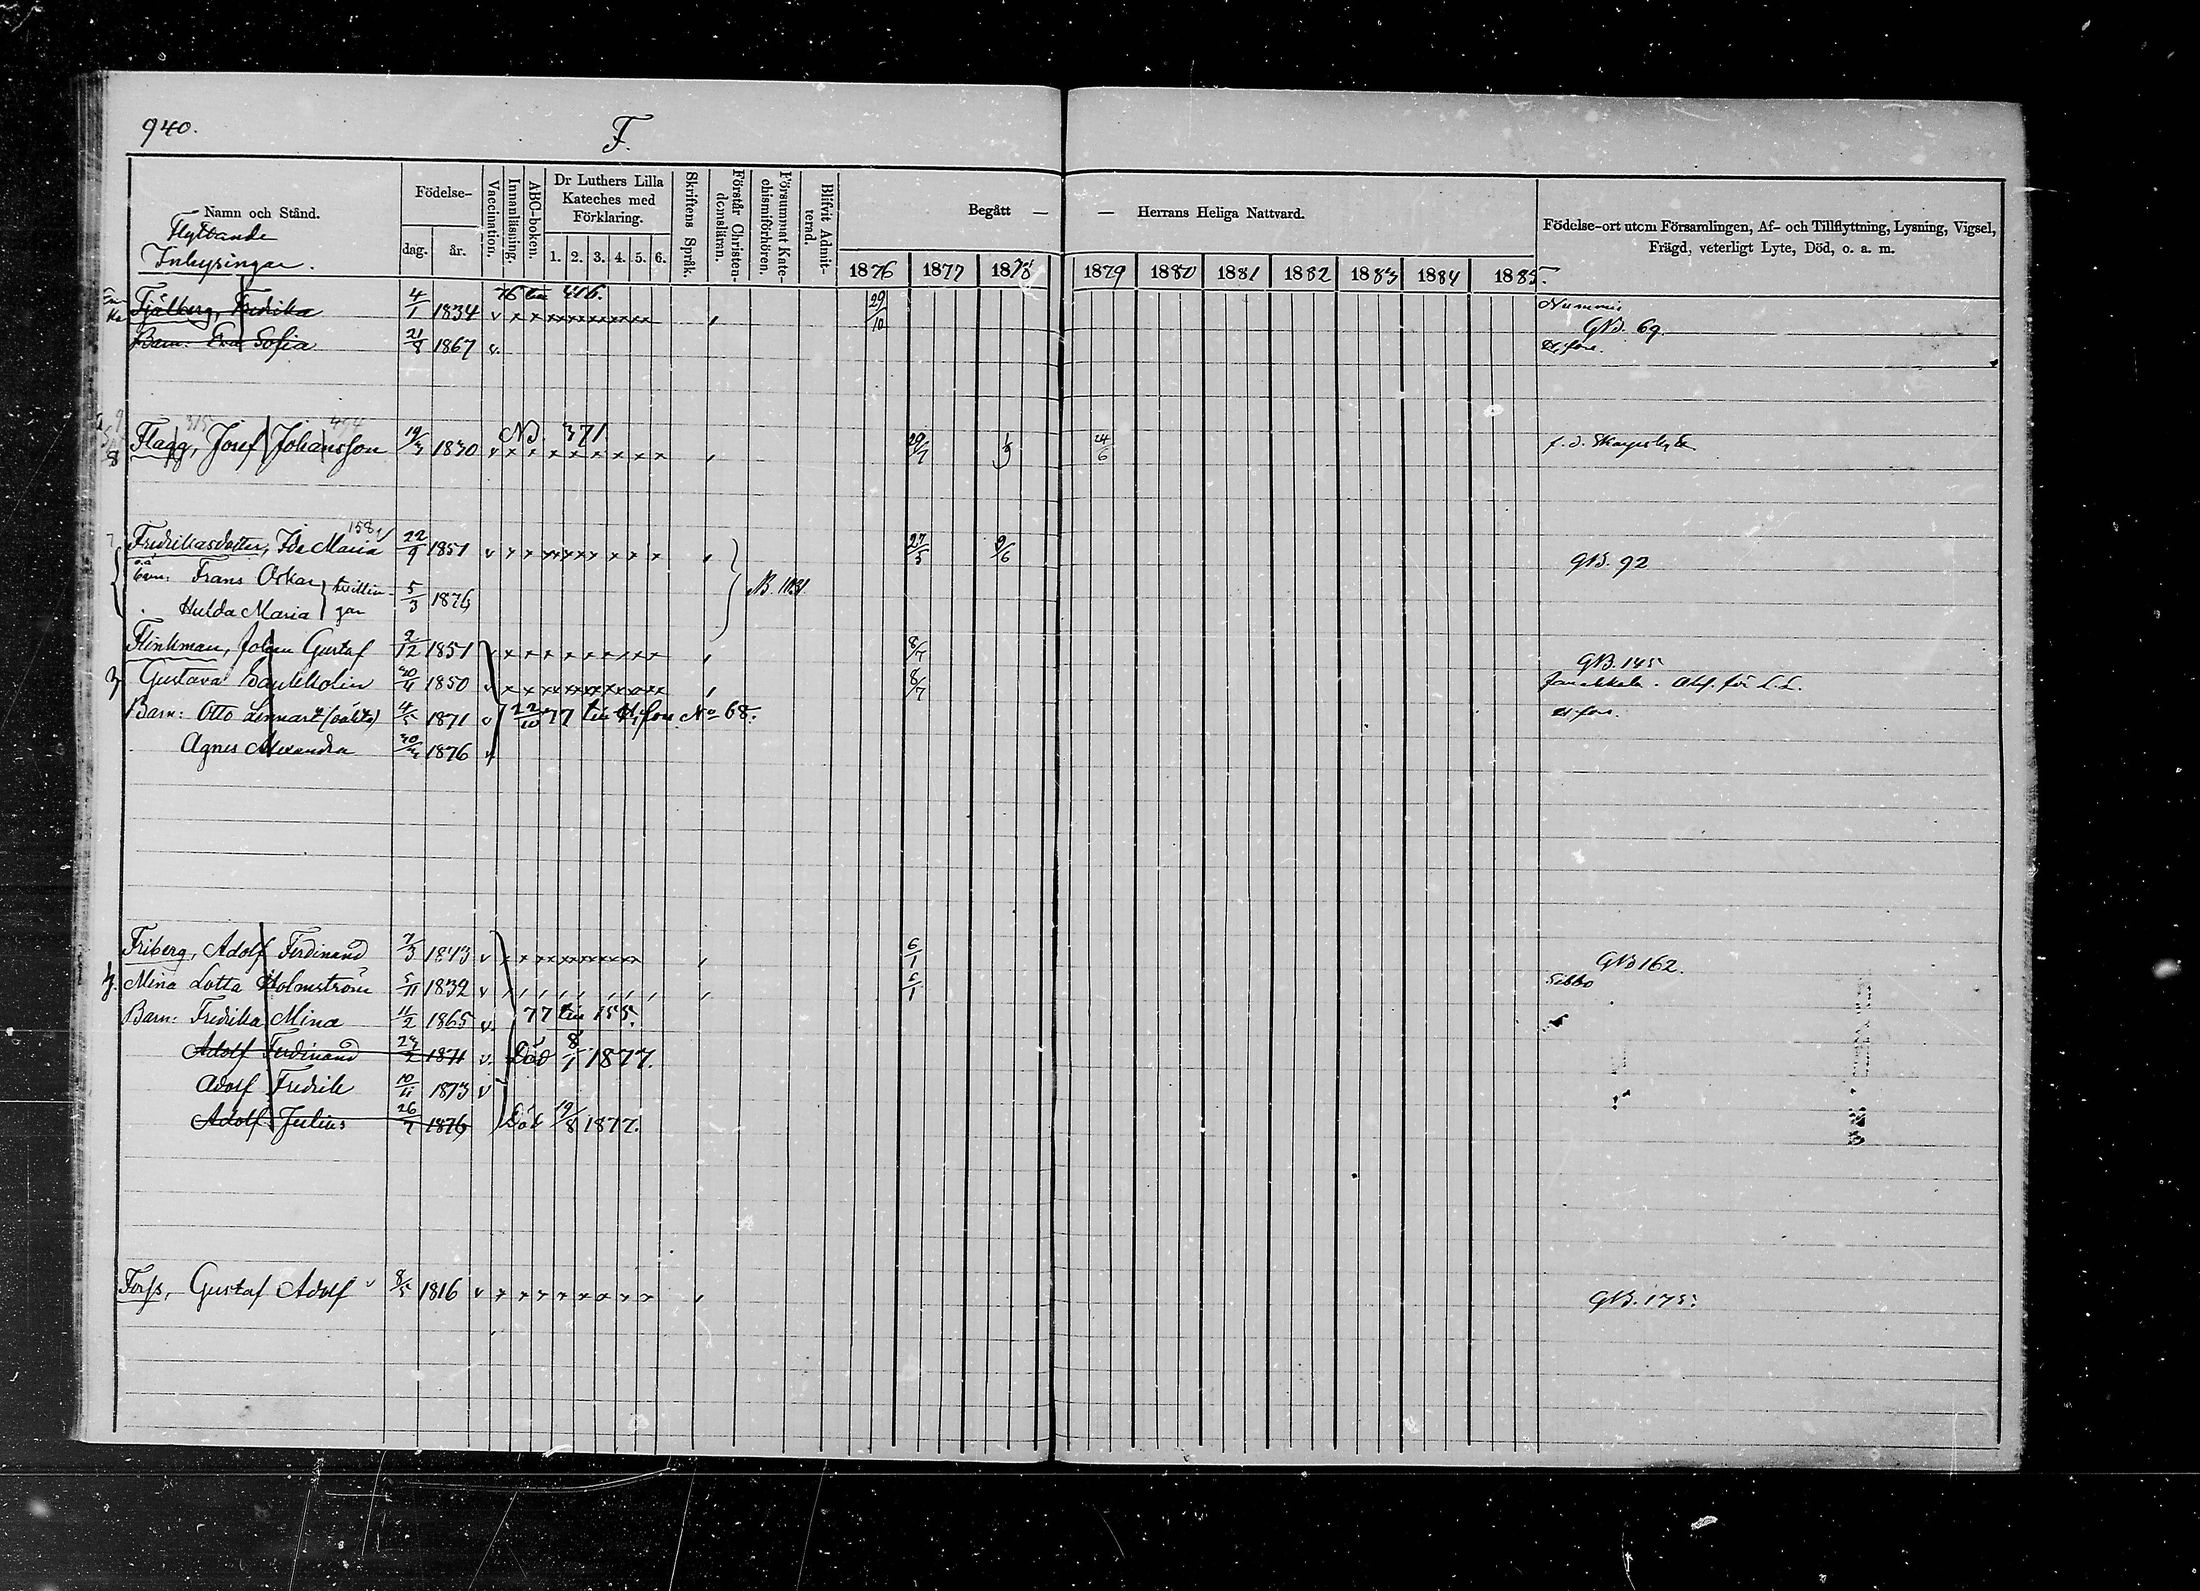 940.
F.
Namn och Stånd.
Flyttande
Inhysingar.
Födelse-
dag.
år.
Vaccination.
Innanläsning.
ABC-boken.
Dr Luthers Lilla
Kateches med
Förklaring.
1. 2. 3. 4. 5. 6.
Skriftens Språk.
Förstår Christen-
domsläran.
Försummat Kate-
chismiförhören.
Blifvit Admit-
terad.
Begått — — Herrans Heliga Nattvard.
1876 1877 1878 1879 1880 1881 1882 1883 1884 1885.
Födelse-ort utom Församlingen, Af- och Tillflyttning, Lysning, Vigsel,
Frägd, veterligt Lyte, Död, o. a. m.
76 till 416.
Fjälberg, Fredrika 4/1 1834 v x x x x x x x x 29/10 Nummis
GB. 69.
Barn: Eva Sofia 21/8 1867 v. H:fors.
NB. 371
Flagg, Josef Johansson 19/3 1830 v x x x x x x x x 24/6
158
Fredrikasdotter, Ida Maria 22/9 1851 v x x x x x x x x 27/5 9/6
GB. 92
barn: Frans Oskar tvillin-
Hulda Maria gar 5/3 1876
Flinkman, Johan Gustaf 2/12 1851 v x x x x x x x x 8/7
GB. 145
Gustava 1850 v x x x x x x x x 8/7
Barn: Otto Lennart (oäkta) 4/5 1871 v 22/10 77 till H:fors No 68. H:fors.
Agnes Alexandra 1876 v
Friberg, Adolf Ferdinand 7/3 1843 v x x x x x x x x 6/1
GB 162.
h. Mina Lotta Holmström 5/11 1832 v 6/1 Sibbo
Barn: Fredrika Mina 11/2 1865 v. 77 till 155.
Adolf Ferdinand 1871 v. Död 8/1 1877.
Adolf Fredrik 10/11 1873 v
Adolf Julius 26/7 1876 Död 19/8 1877.
Forss, Gustaf Adolf 8/5 1816 v x x x x x x x x
GB. 175.